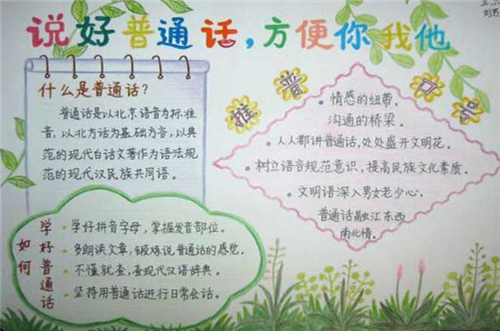 说好普通话,方便你我他
什么是普通话?
普通话是以北京语音为标准
音,以北方话为基础方言,以典
范的现代白话文著作为语法规
范的现代汉民族共同语。
推普口号
·情感的纽带,
沟通的桥梁。
·人人都讲普通话,处处盛开文明花。
·树立语言规范意识,提高民族文化素质。
·文明语深入男女老少心,
普通话融江东西
南北情。
如何
学好普通话
·学好拼音字母,掌握发音部位。
·多朗读文章,锻炼说普通话的感觉。
·不懂就查,查现代汉语辞典。
·坚持用普通话进行日常会话。